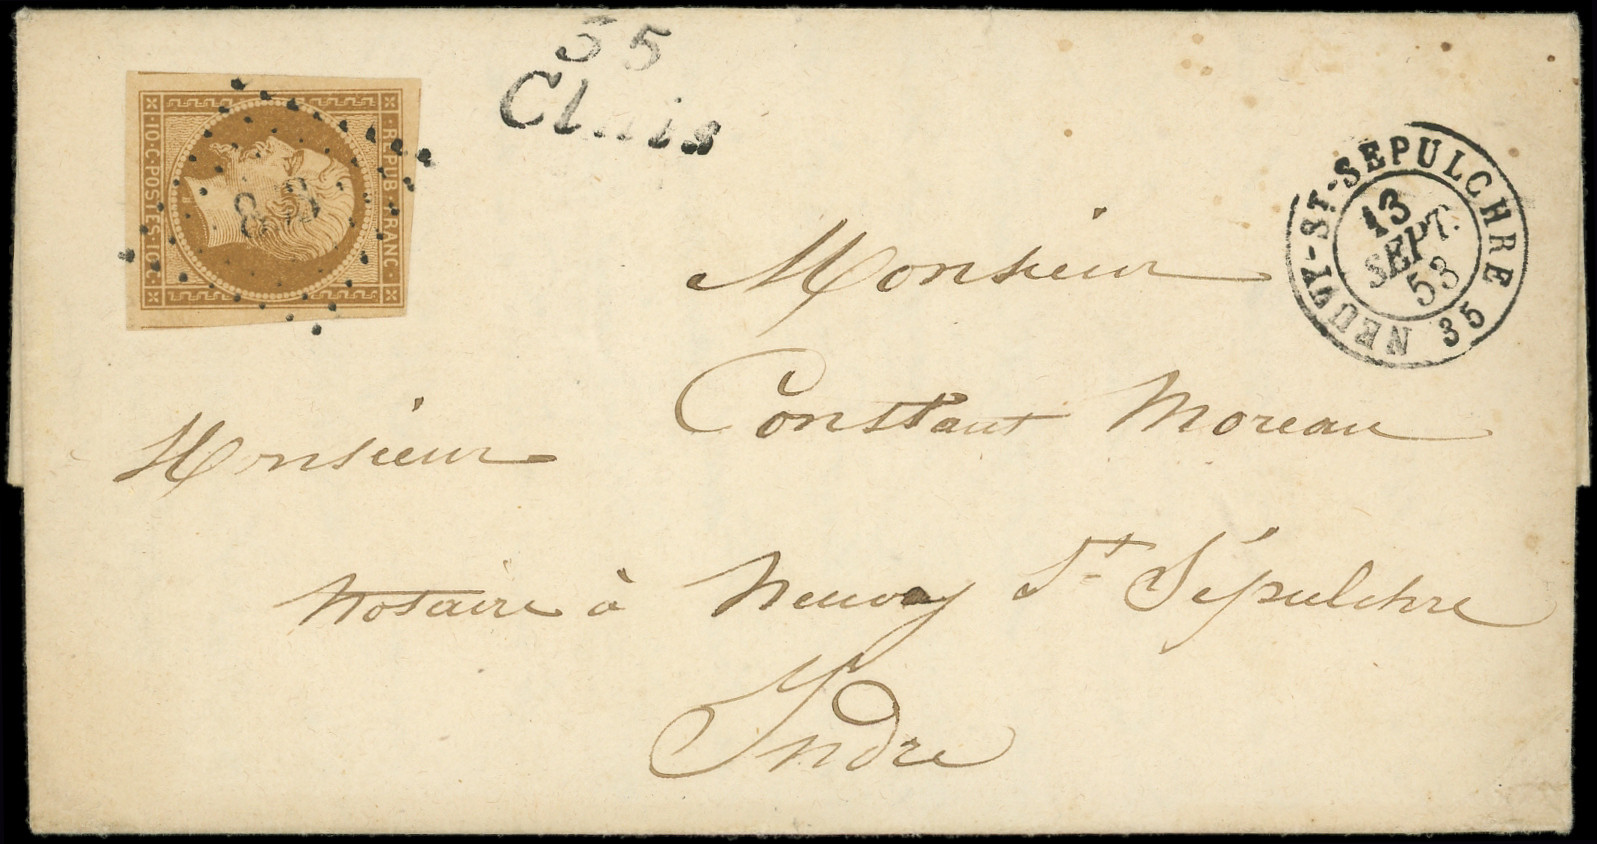 35
Cluis
REPUB. FRANC.
10.C.POSTES.10.C.
NEUVY-ST-SEPULCHRE
13
SEPT.
53
35
Monsieur
Constant Moreau
Monsieur
Notaire à Neuvy St Sépulchre
Indre